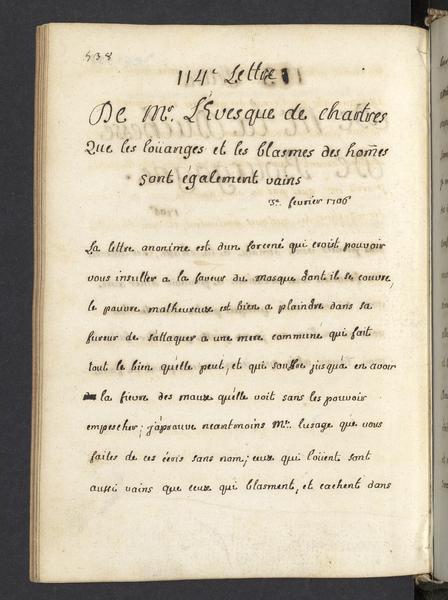 538
114e Lettre
De Mr. L'Evesque de chartres
Que les loüanges et les blasmes des hom̃es
sont également vains
3e. fevrier 1706
La lettre anonime est d'un forcené qui croit pouvoir
vous insulter a la faveur du masque dont il se couvre,
le pauvre malheureux est bien a plaindre dans sa
fureur de s'attaquer a une mere commune qui fait
tout le bien qu'elle peut, et qui souffre jusqu'a en avoir
la fievre des maux qu'elle voit sans les pouvoir
empescher; j'aprouve neantmoins Me. lusage que vous
faites de ces écris sans nom; ceux qui loüent sont
aussi vains que ceux qui blasment, et cachent dans